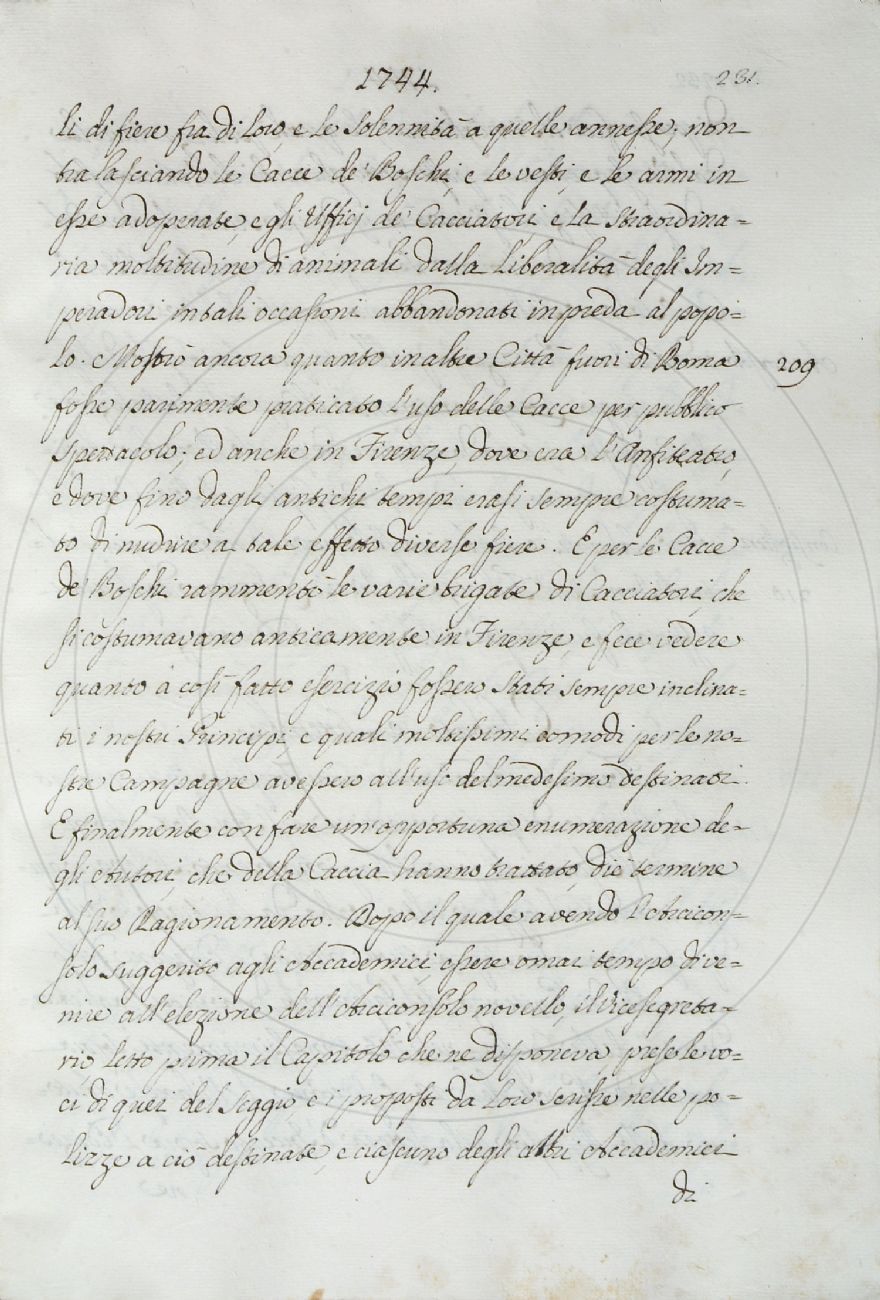 1744.
231.
li di fiere fra di loro, e le solennità a quelle annesse; non
tralasciando le Cacce de' Boschi, e le vesti, e le armi in
esse adoperate, e gli Uffici de' Cacciatori e la straordina=
ria moltitudine di animali dalla liberalità degli Im=
peradori in tali occasioni abbandonati in preda al popo=
lo. Mostrò ancora quanto in altre Città fuori di Roma
209
fosse parimente praticato l'uso delle Cacce per pubblico
spettacolo; ed anche in Firenze, dove era l'Anfiteatro,
e dove fino dagli antichi tempi erasi sempre costuma=
to di nudrire a tale effetto diverse fiere. E per le Cacce
de' Boschi rammentò le varie brigate di Cacciatori, che
si costumavano anticamente in Firenze, e fece vedere
quanto a così fatto esercizio fossero stati sempre inclina=
ti i nostri Principi, e quali moltissimi comodi per le no=
stre Campagne avessero all'uso del medesimo destinati.
E finalmente con fare un'opportuna enumerazione de=
gli Autori, che della Caccia hanno trattato, diè termine
al suo Ragionamento. Dopo il quale avendo l'Arcicon=
solo suggerito agli Accademici, essere omai tempo di ve=
nire all'elezione dell'Arciconsolo novello, il Vicesegreta=
rio, letto prima il Capitolo che ne disponeva, prese le vo=
ci di quei del Seggio, e i proposti da loro scrisse nelle po=
lizze a ciò destinate, e ciascuno degli altri Accademici
di